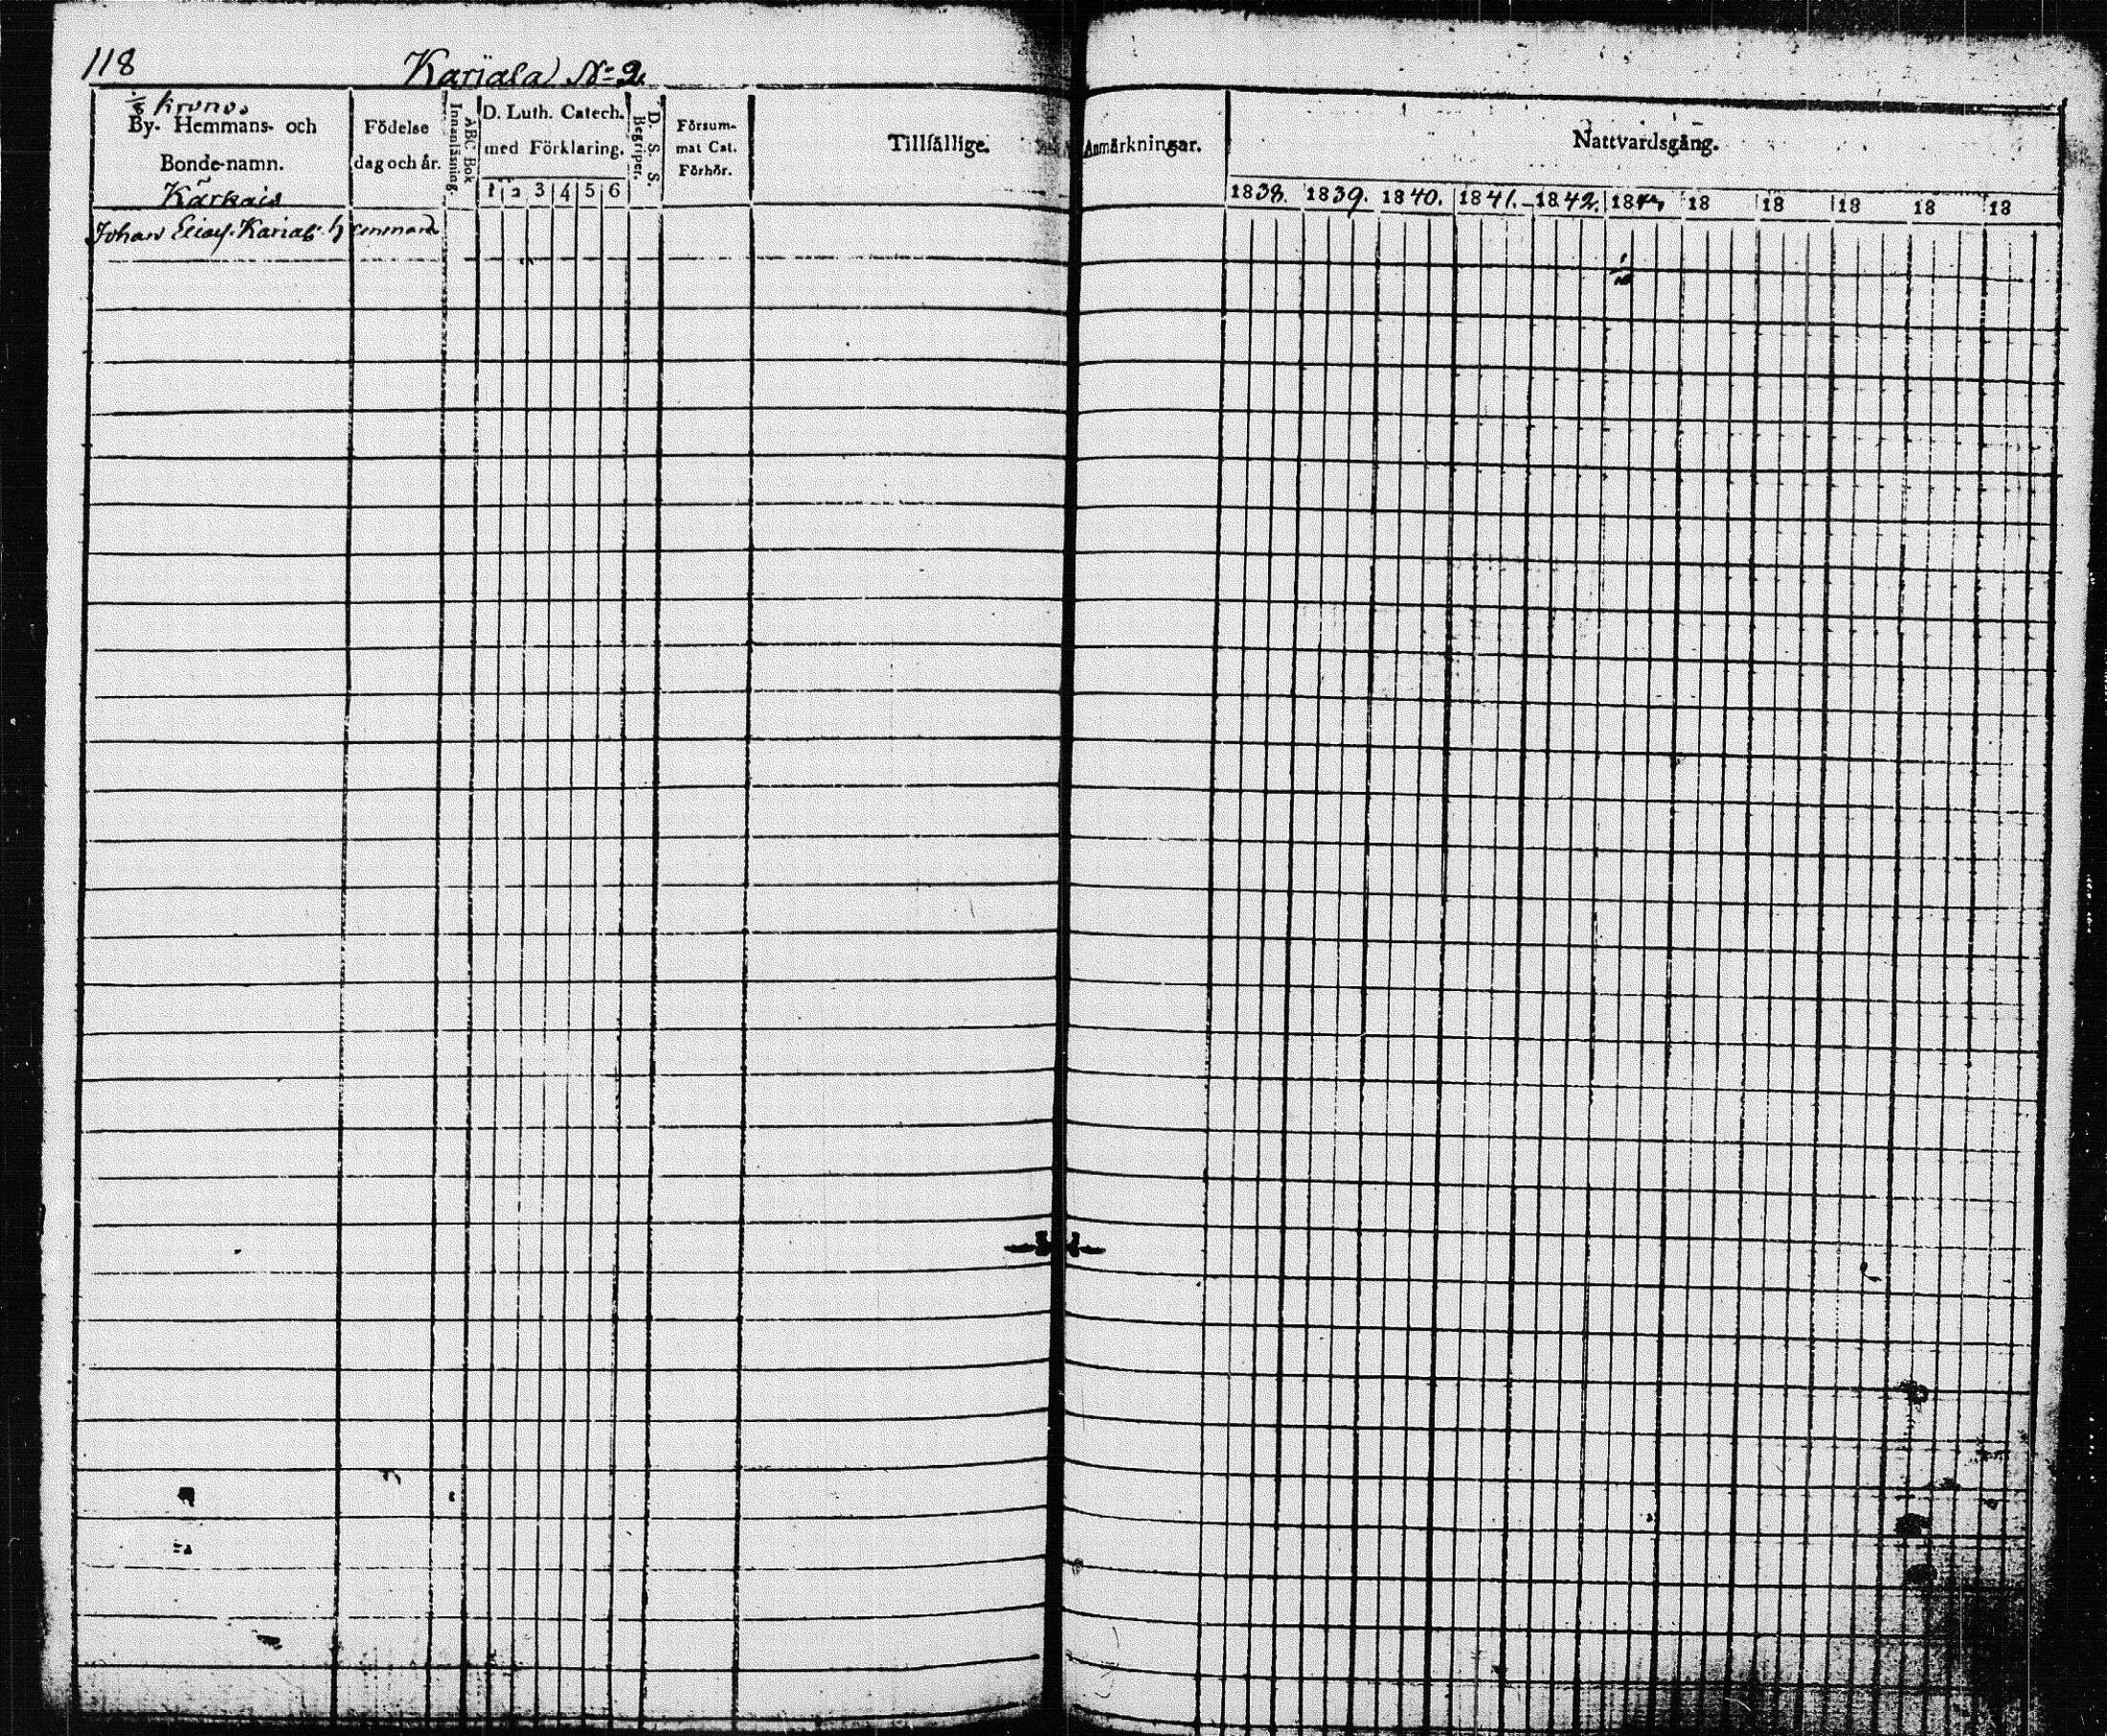 118
Kariala No 2.
1/8 krono
By- Hemmans- och
Bonde-namn.
Kärkais
Födelse
dag och år.
Innanläsning.
ABC Bok
D. Luth. Catech.
med Förklaring.
1 2 3 4 5 6
D. S. S.
Begriper.
Försum-
mat Cat.
Förhör.
Tillfällige Anmärkningar.
Nattvardsgång.
1838. 1839. 1840. 1841. 1842. 18 18 18 18 18 18
Johan